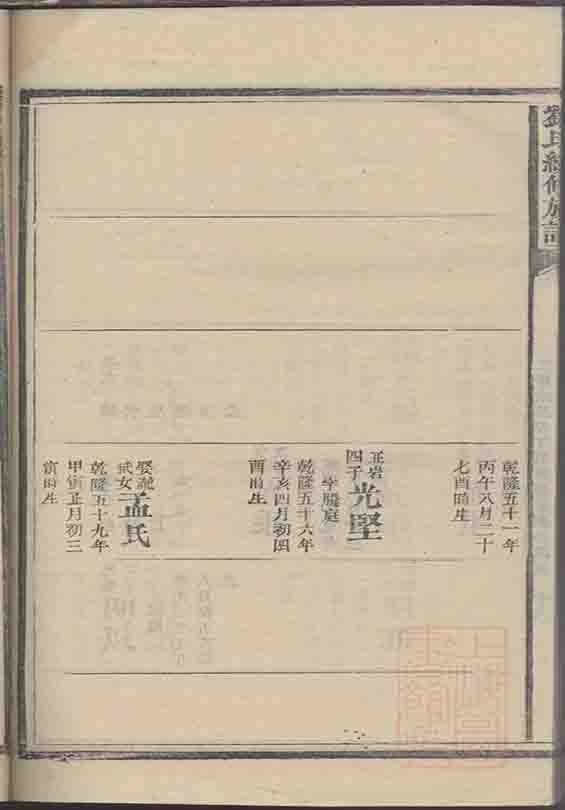 劉氏續修族譜
乾隆五十一年
丙午八月二十
七酉時生
正岩
四子
光堅
字勝庭
乾隆五十六年
辛亥四月初四
酉時生
娶
武女
孟氏
乾隆五十九年
甲寅正月初三
寅時生